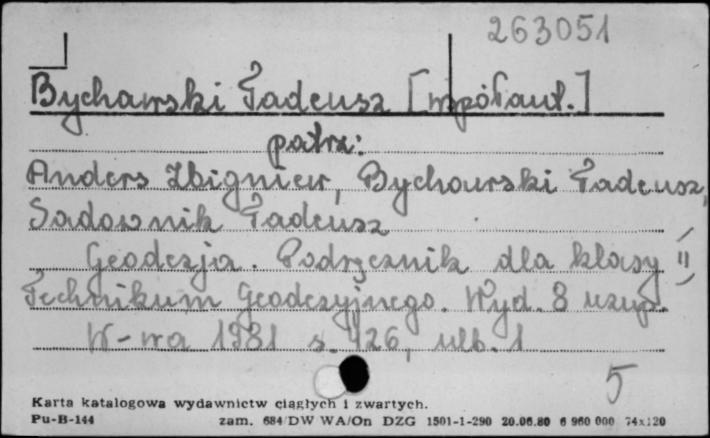 263051
Bychawski Tadeusz [współaut.]
patrz:
Anders Zbigniew, Bychawski Tadeusz,
Sadownik Tadeusz
Geodezja. Podręcznik dla klasy II
Technikum Geodezyjnego. Wyd. 8 uzup.
W-wa 1981 s. 426, nlb. 1
5
Karta katalogowa wydawnictw ciągłych i zwartych.
Pu-B-144 zam. 684/DW WA/On DZG 1501-1-290 20.06.80 6 960 000 74x120